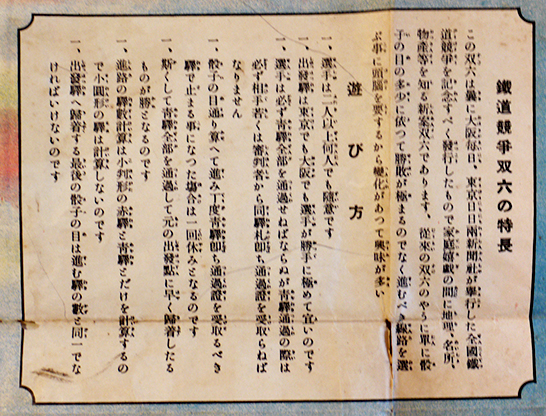 鐵道競爭双六の特長
この双六は曩に大阪每日、東京日日兩新聞社が擧行した全國鐵
道競爭を記念すべく發行したもので家庭嬉戲の間に地理、名所、
物產等を知る新案双六であります、從來の双六のやうに單に骰
子の目の多少に依つて勝敗が極まるのでなく進むべき線路を選
ぶ事に頭腦を要するから變化があつて興味が多い
遊び方
一、選手は二人以上何人でも隨意です
一、出發驛は東京でも大阪でも選手が勝手に極めて宜いのです
一、選手は必ず靑驛全部を通過せねばならぬが靑驛通過の際は
必ず相手若くは審判者から同驛札卽ち通過證を受取らねば
なりません
一、骰子の目通り算へて進み丁度靑驛卽ち通過證を受取るべき
驛で止まる事になつた塲合は一回休みとなるのです
一、斯くして靑驛全部を通過して元の出發點に早く歸着したる
ものが勝となるのです
一、進路の驛數計算は小判形の赤驛と靑驛とだけを計算するの
で小圓形の驛は計算しないのです
一、出發驛へ歸着する最後の骰子の目は進む驛の數と同一でな
ければいけないのです